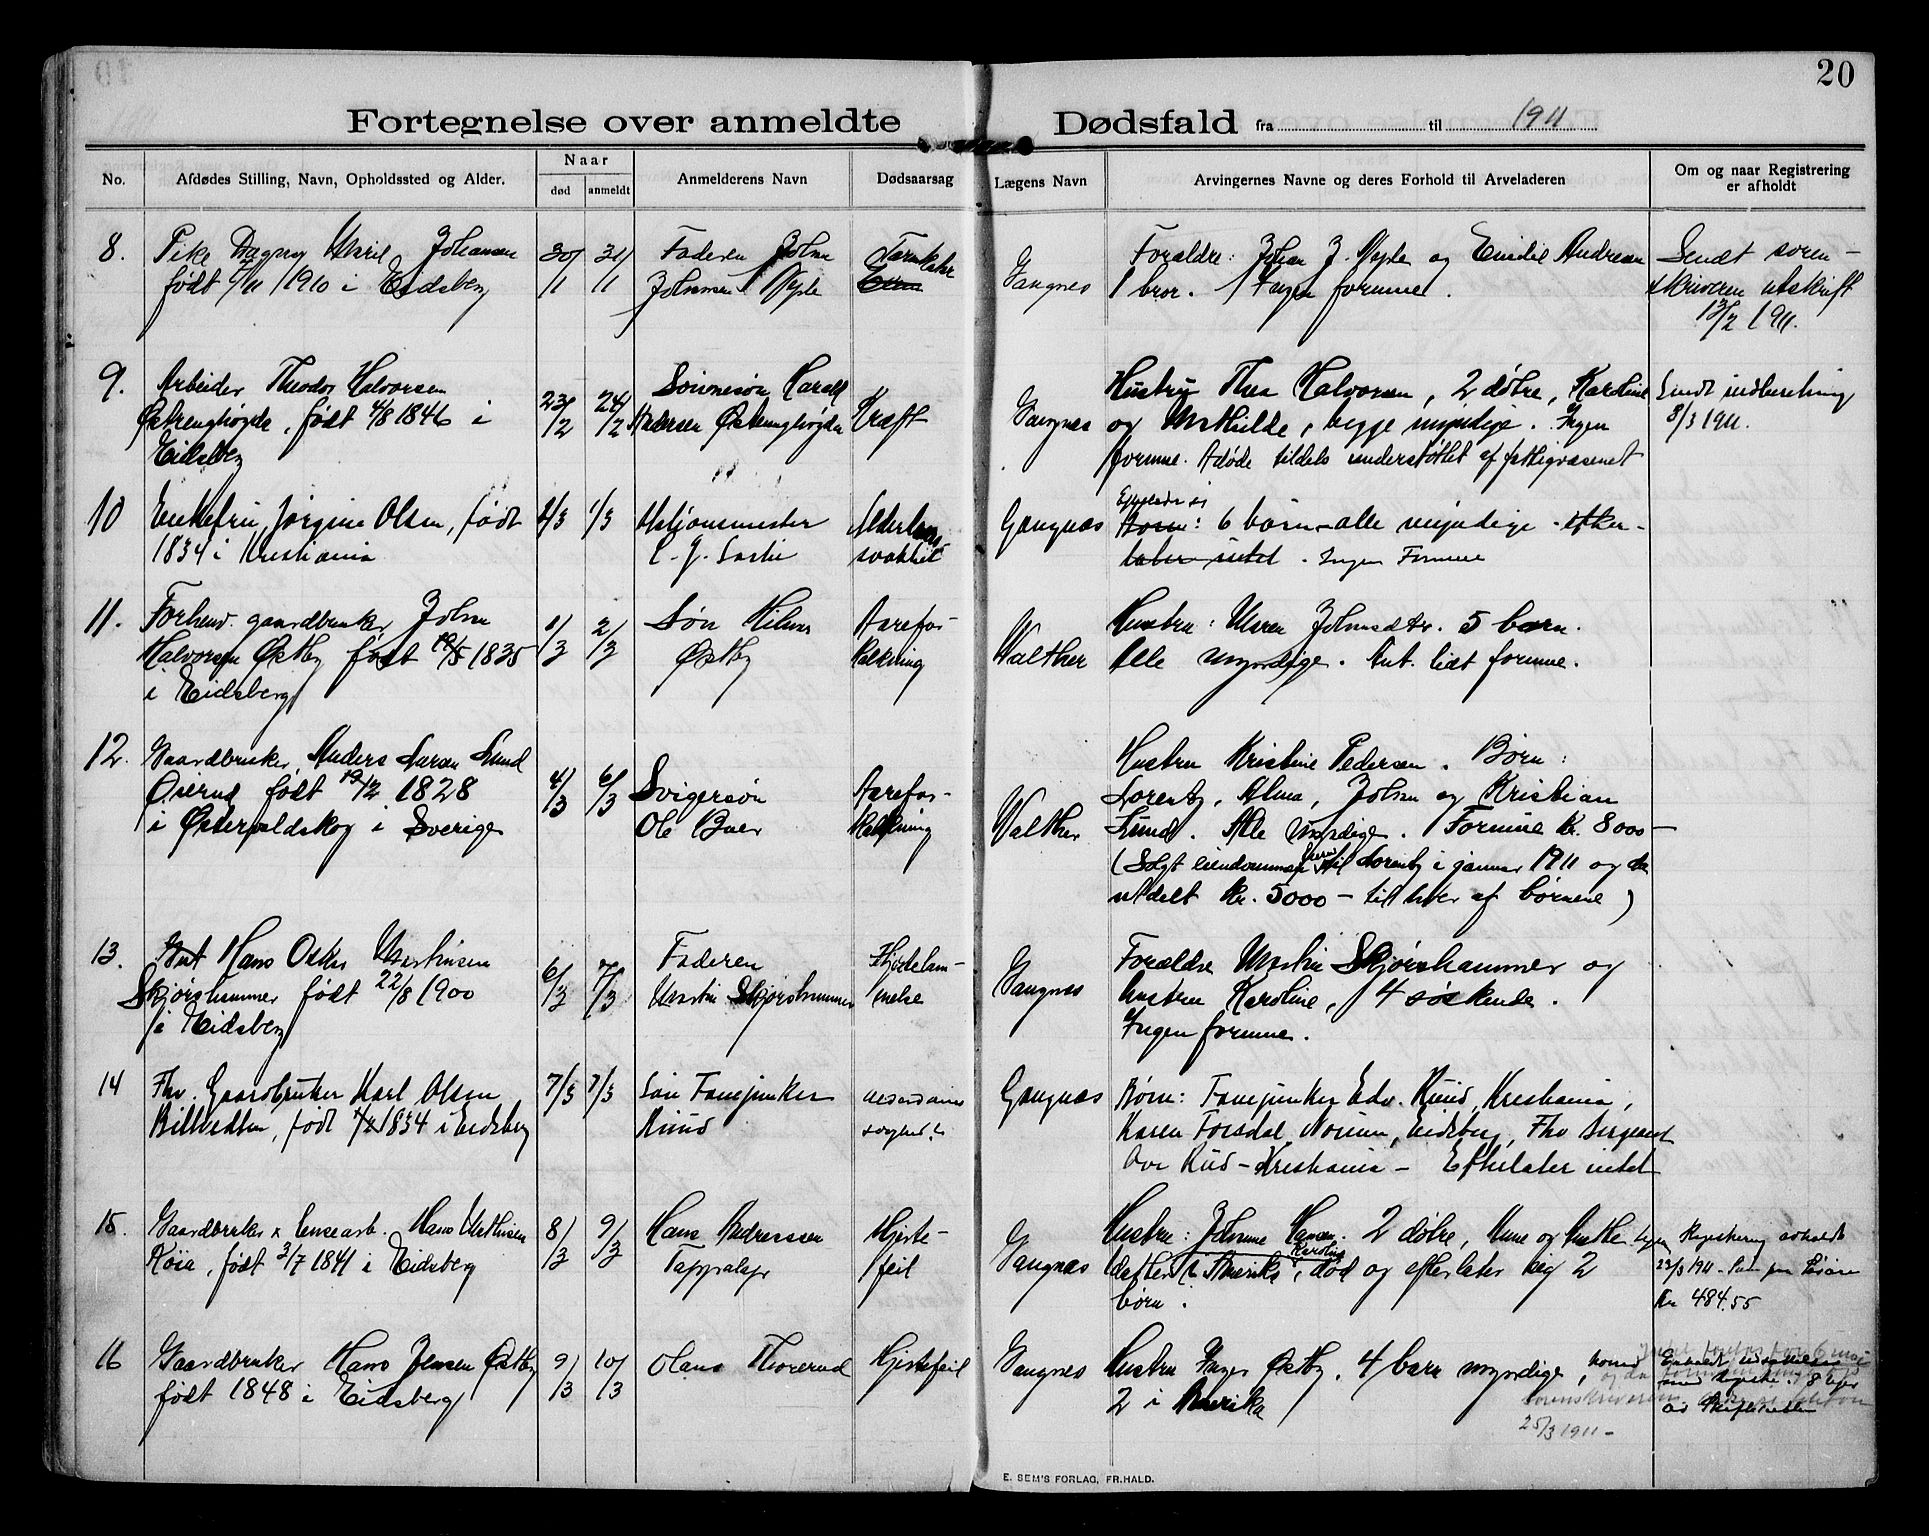 20
Fortegnelse over anmeldte Dødsfald fra til 1911
No.
Afdødes Stilling, Navn, Opholdssted og Alder.
Naar
død
anmeldt
Anmelderens Navn
Dødsaarsag
Lægens Navn
Arvingernes Navne og deres Forhold til Arveladeren
Om og naar Registrering
er afholdt
8.
Pike Dagny Marie Johansen
født 1910 i Eidsberg
30/1
31/1
Faderen Johan
Johansen
Tarmkatar
Gangnes
Forældre: Johan J. og Emilie Andresen
1 bror. Ingen formue.
Sendt soren-
skriveren utskrift
13/2 1911.
9.
Arbeider Theodor Halvorsen
Østrenghøgda, født 4/8 1846 i
Eidsberg
23/2
24/2
Sønnesøn Harald
Andersen Østrenghøgda
Kræft
Gangnes
Hustru Thea Halvorsen, 2 døtre, Karoline
og Mathilde, begge myndige. Ingen
formue. Adøde tildels understøttet af fattigvæsenet
Sendt indberetning
8/3 1911.
10
Enkefru, Jørgine Olsen, født
1834 i Kristiania
1/3
1/3
Stationsmester
Alderdoms-
svakhet
Gangnæs
6 børn - alle myndige - efter-
later intet. Ingen Formue
11.
Forhenv. gaardbruker Johan
Halvorsen Østby født 19/5 1835
i Eidsberg
1/3
2/3
Søn Hilmar
Østby
Aarefor-
kalkning
Walther
Hustru: Maren Johnsdtr. 5 barn.
Alle myndige. Ant. lidt formue.
12.
Gaardbruker Anders Larsen Lund
Øierud født 19/12 1828
i Østervaldskog i Sverige
4/3
6/3
Svigersøn
Ole Buer
Aarefor-
kalkning
Walther
Hustru Kristine Pedersen. Børn:
Lorentz, Alma, Johan og Kristian
Lund. Alle myndige. Formue Kr. 8000-
(Solgt eiendommen til Lorentz i januar 1911 og da
utdelt Kr. 5000 - til hver af børnene)
13.
Gut Hans Oskar Martinsen
Skjørshammer født 22/8 1900
i Eidsberg
6/3
7/3
Faderen
Martin Skjørshammer
Gangnes
Forældre Martin Skjørshammer og
hustru Karoline, 4 søskende.
Ingen formue.
14
Fhv. Gaardbruker Karl Olsen
født 1834 i Eidsberg
7/3
7/3
Søn Fanejunker
Ruud
Gangnæs
Børn: Fanejunker Edv. Ruud, Kristiania,
Karen Forsdal, Eidsberg, Fhv Sergeant
Ove Rud - Kristiania - Efterlater intet
15.
Gaardbruker x Hans Mathisen
Røia, født 3/7 1841 i Eidsberg
8/3
9/3
Hans Andreassen
Hjerte-
feil
Gangnæs
Hustru: Johanne Hansen. 2 døtre, Anne og
datter i Amerika, Karoline, død og efterlater sig 2
børn.
Registrering avholdt
23/3 1911
Kr 484.55
16
Gaardbruker Hans Jensen Østby
født 1848 i Eidsberg
9/3
10/3
Olaus Thorerud
Hjertefeil
Gangnes
Hustru Inger Østby. 4 barn myndige,
2 i Amerika
sorenskriveren
25/3 1911 -
E. SEM'S FORLAG, FR.HALD.